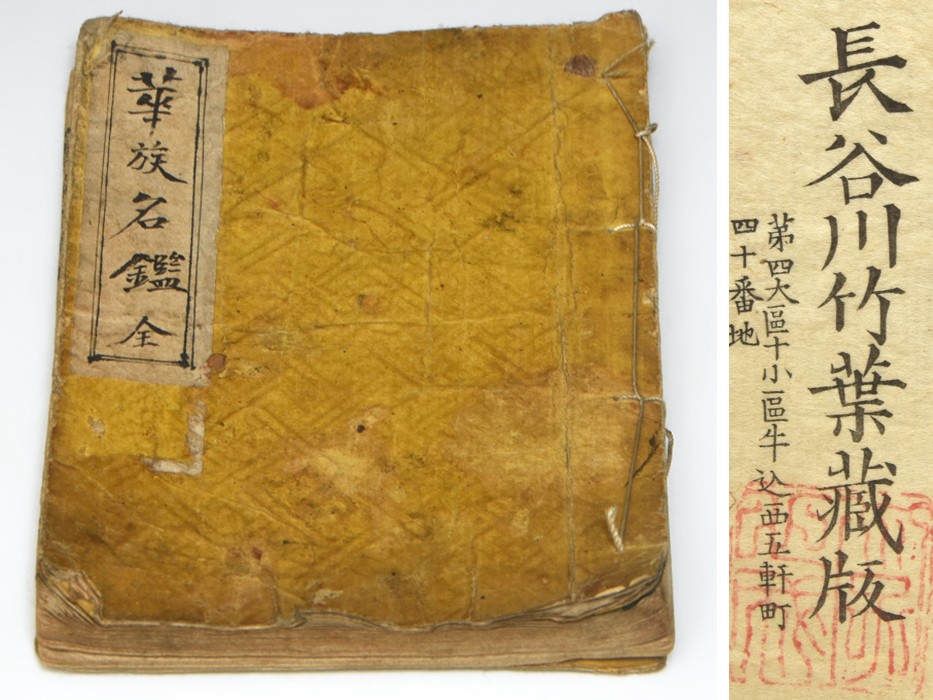 華族名鑑 全
長谷川竹葉藏版
第四大區十小區牛込西五軒町
四十番地